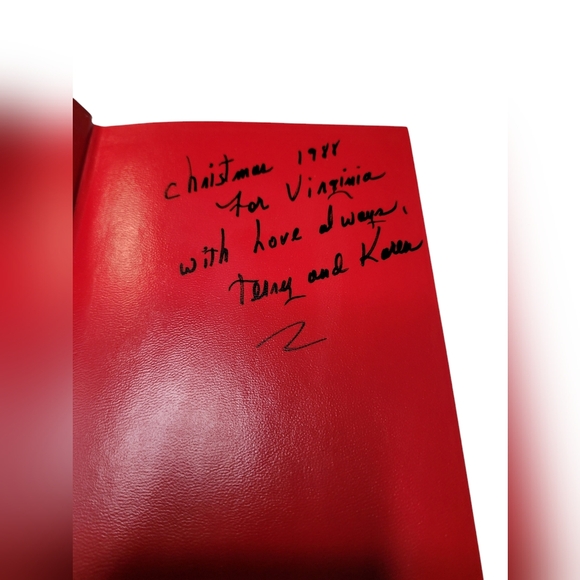 Christmas 1988
for Virginia
with Love always,
Terry and Karen